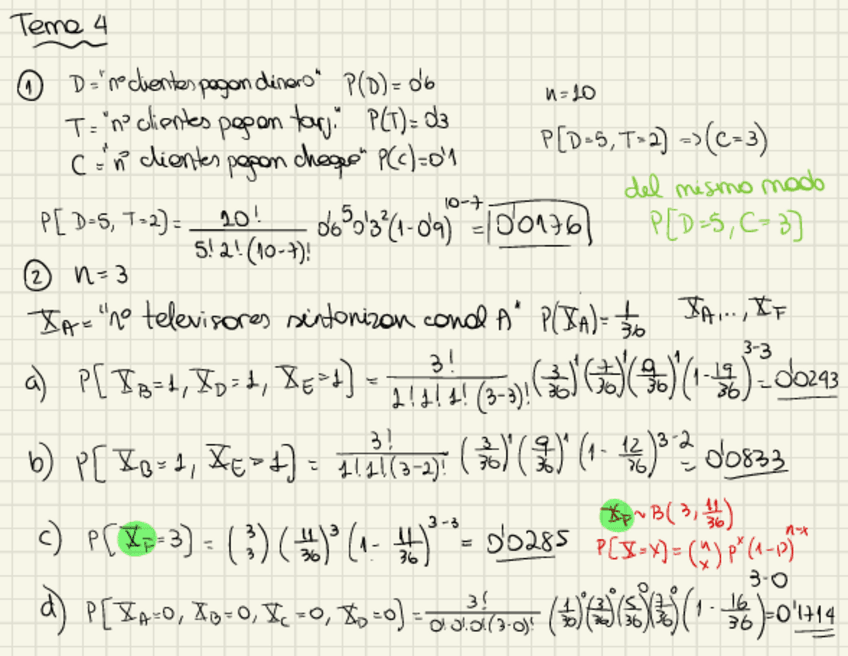 Tema 4
① D="nº clientes pagan dinero" P(D)=0'6
n=10
T="nº clientes pagan tarj." P(T)=0'3
P[D=5, T=2] => (C=3)
C="nº clientes pagan cheque" P(C)=0'1
del mismo modo
P[D=5, T=2] = 10! / 5! 2! (10-7)! 0'6⁵ 0'3² (1-0'9)¹⁰⁻⁷ = 0'0176
P[D=5, C=3]
② n=3
X_A="nº televisores sintonizan canal A" P(X_A)=1/36 X_A,..., X_F
a) P[X_B=1, X_D=1, X_E=1] = 3! / 1! 1! 1! (3-3)! (3/36)¹ (7/36)¹ (9/36)¹ (1-19/36)³⁻³ = 0'0243
b) P[X_B=1, X_E=1] = 3! / 1! 1! (3-2)! (3/36)¹ (9/36)¹ (1-12/36)³⁻² = 0'0833
X_F ~ B(3, 11/36)
c) P[X_F=3] = (3 3) (11/36)³ (1-11/36)³⁻³ = 0'0285
P[X=x] = (n x) pˣ (1-p)ⁿ⁻ˣ
d) P[X_A=0, X_B=0, X_C=0, X_D=0] = 3! / 0! 0! 0! (3-0)! (1/36)⁰ (3/36)⁰ (5/36)⁰ (7/36)⁰ (1-16/36)³⁻⁰ = 0'1714